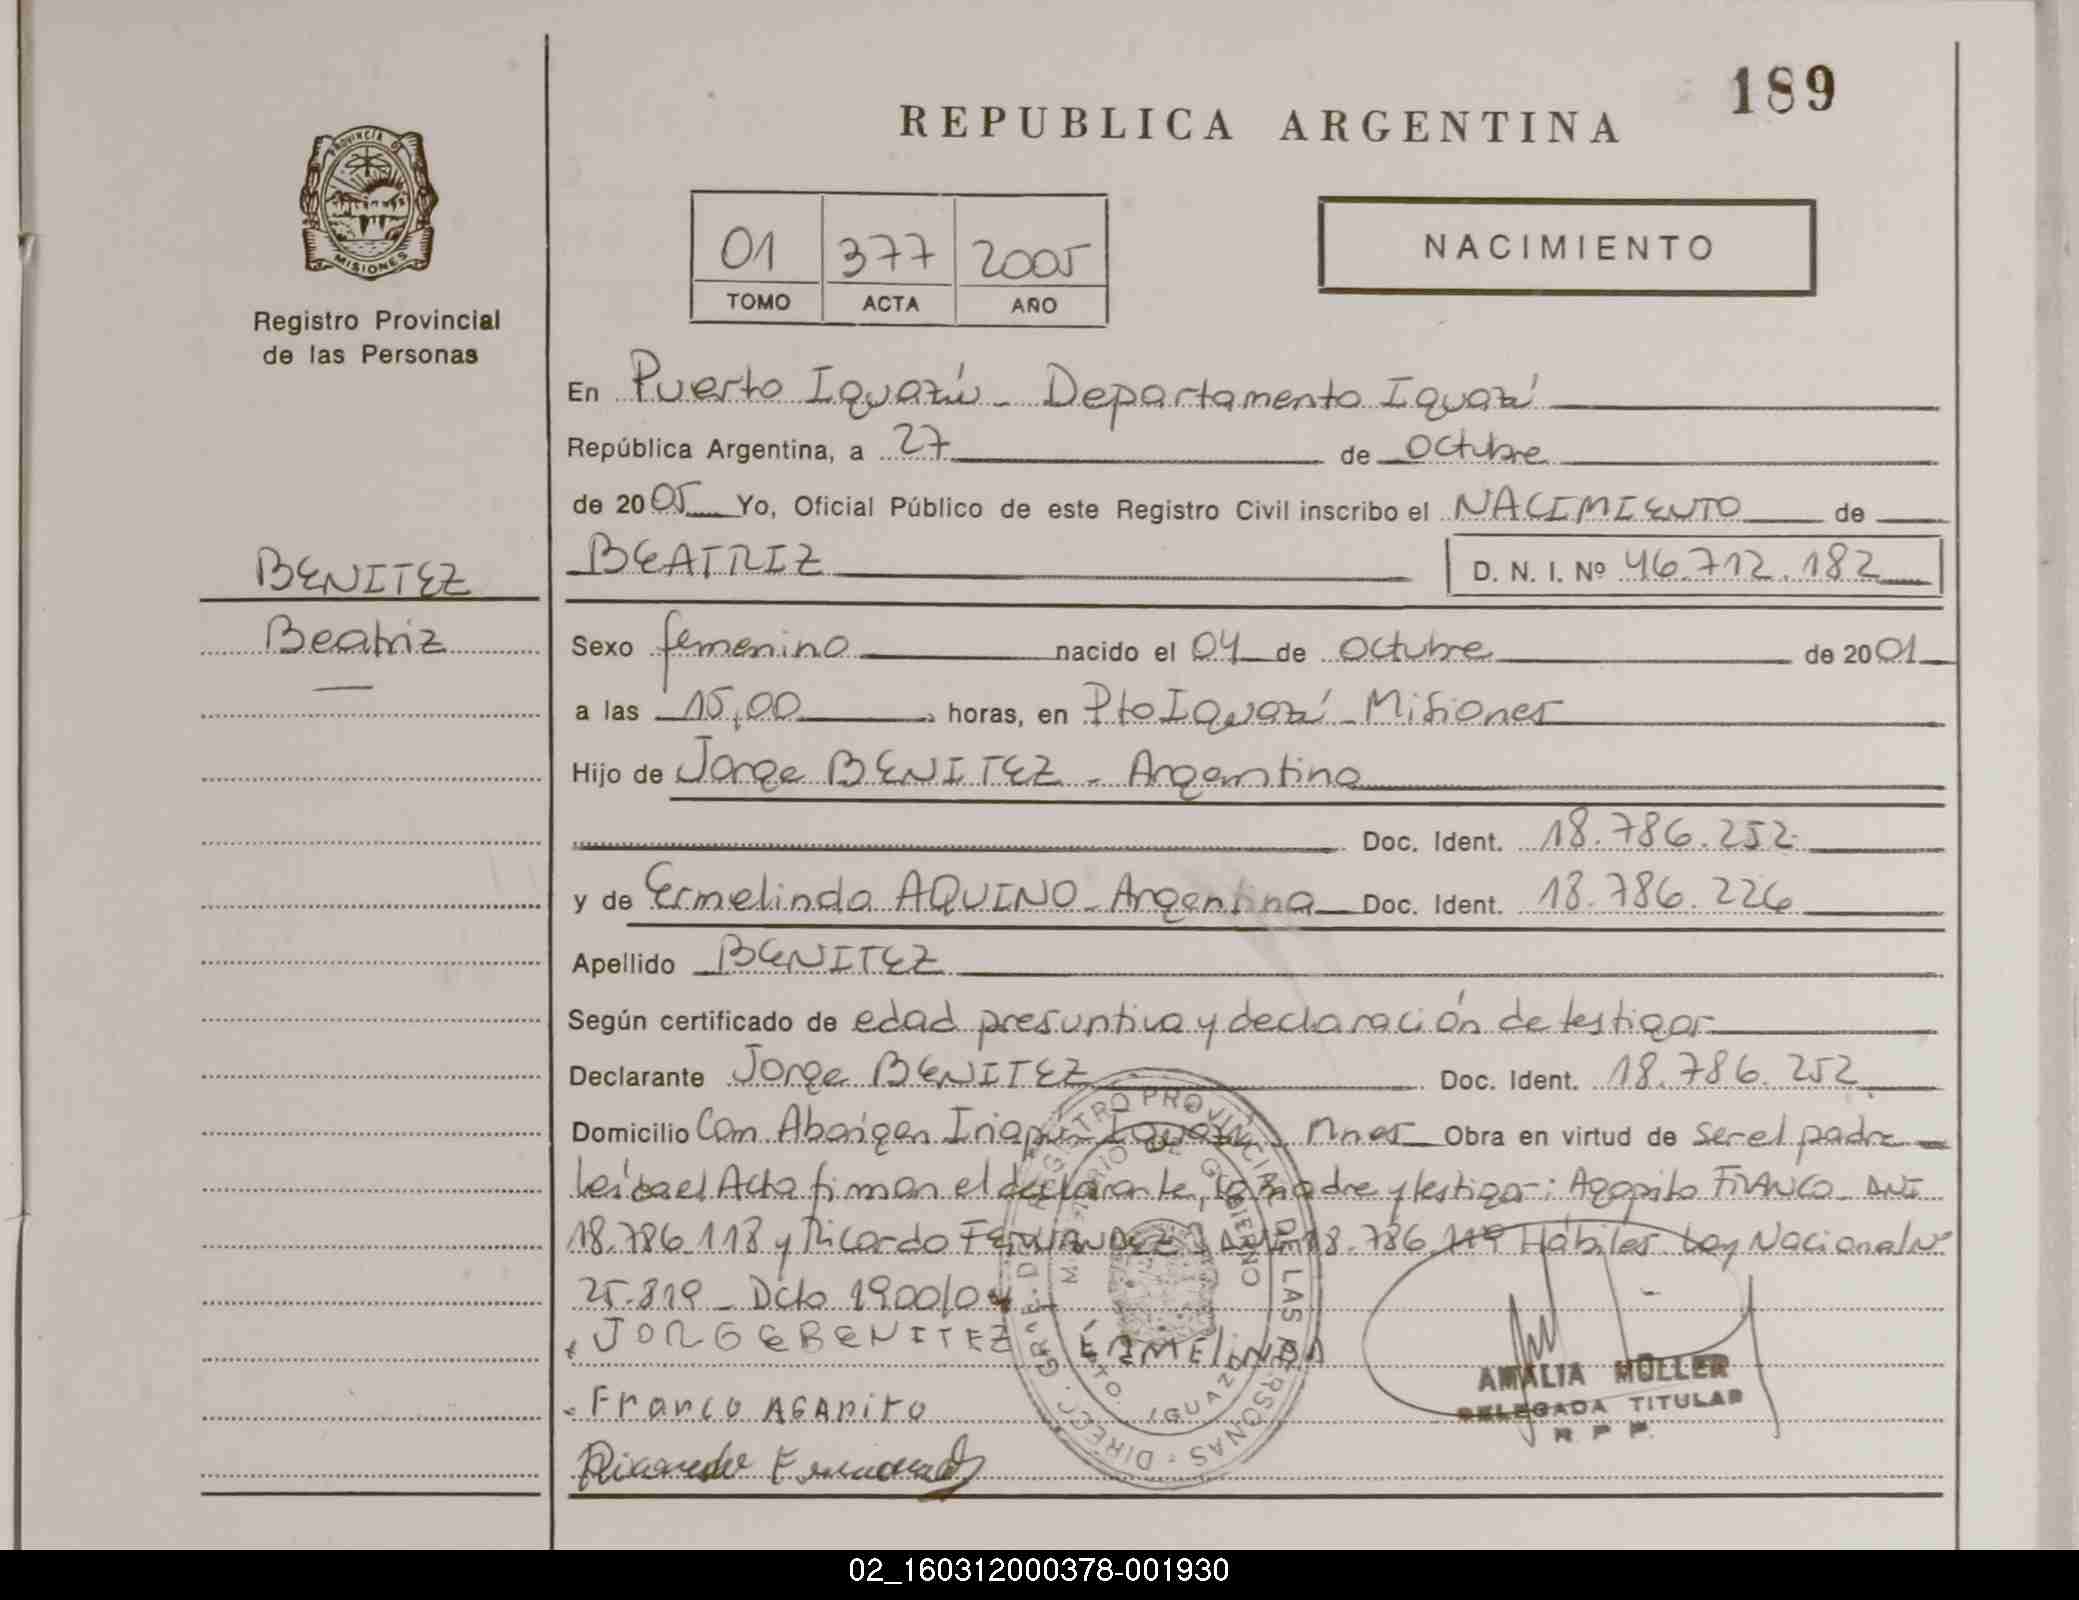 189
REPUBLICA ARGENTINA
PROVINCIA DE
MISIONES
Registro Provincial
de las Personas
01 377 2005
TOMO ACTA AÑO
NACIMIENTO
En Puerto Iguazú - Departamento Iguazú
República Argentina, a 27 de Octubre
de 2005 Yo, Oficial Público de este Registro Civil inscribo el NACIMIENTO de
BENITEZ
Beatriz
BEATRIZ D. N. I. Nº 46.712.182
Sexo femenino nacido el 04 de octubre de 2001
a las 15,00 horas, en Pto Iguazú - Misiones
Hijo de Jorge BENITEZ - Argentino
Doc. Ident. 18.786.252
y de Ermelinda AQUINO - Argentina Doc. Ident. 18.786.226
Apellido BENITEZ
Según certificado de edad presuntiva y declaración de testigos
Declarante Jorge BENITEZ Doc. Ident. 18.786.252
Domicilio Com Aborigen Iriapu Iguazú Mnes Obra en virtud de ser el padre
Leída el Acta firman el declarante, la madre y testigos: Agapito FRANCO - DNI
18.786.118 y Ricardo FERNANDEZ DNI 18.786.119 Hábiles Ley Nacional Nº
25.819 - Dcto 1900/04
JORGE BENITEZ ERMELINDA
Franco AGAPITO
Ricardo Fernandez
REGISTRO PROVINCIAL DE LAS PERSONAS
MINISTERIO DE GOBIERNO
DPTO. IGUAZU
AMALIA MÜLLER
DELEGADA TITULAR
R P P
02_160312000378-001930